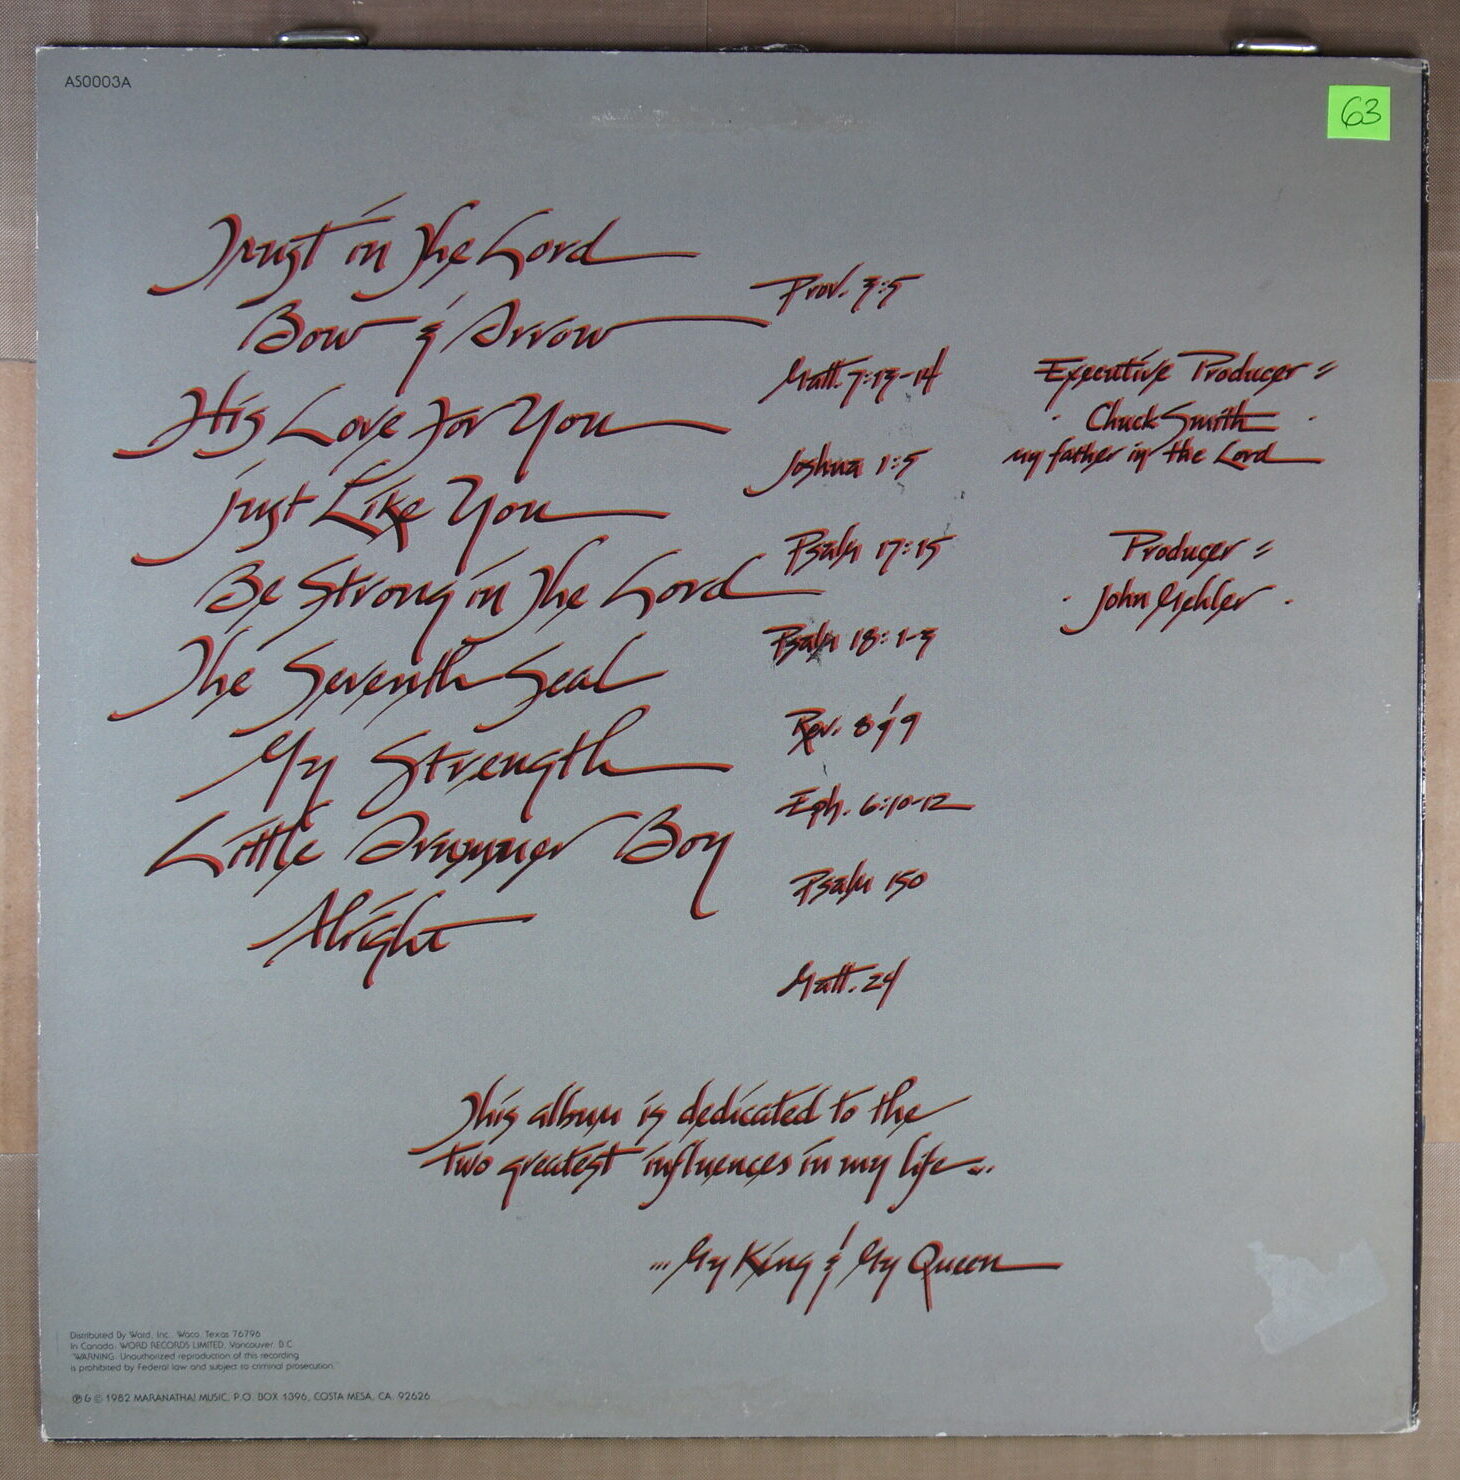 AS0003A
63
Trust in The Lord
Bow & Arrow
His Love For You
Just Like You
Be Strong in The Lord
The Seventh Seal
My Strength
Little Drummer Boy
Alright
Prov. 3:5
Matt. 7:13-14
Joshua 1:5
Psalm 17:15
Psalm 18:1-3
Rev. 8 & 9
Eph. 6:10-12
Psalm 150
Matt. 24
Executive Producer =
· Chuck Smith ·
my father in the Lord
Producer =
· John Mehler ·
This album is dedicated to the
two greatest influences in my life...
... My King & My Queen
Distributed By Word, Inc., Waco, Texas 76796
In Canada: WORD RECORDS LIMITED, Vancouver, B.C.
"WARNING: Unauthorized reproduction of this recording
is prohibited by Federal law and subject to criminal prosecution."
℗ & © 1982 MARANATHA! MUSIC, P.O. BOX 1396, COSTA MESA, CA. 92626